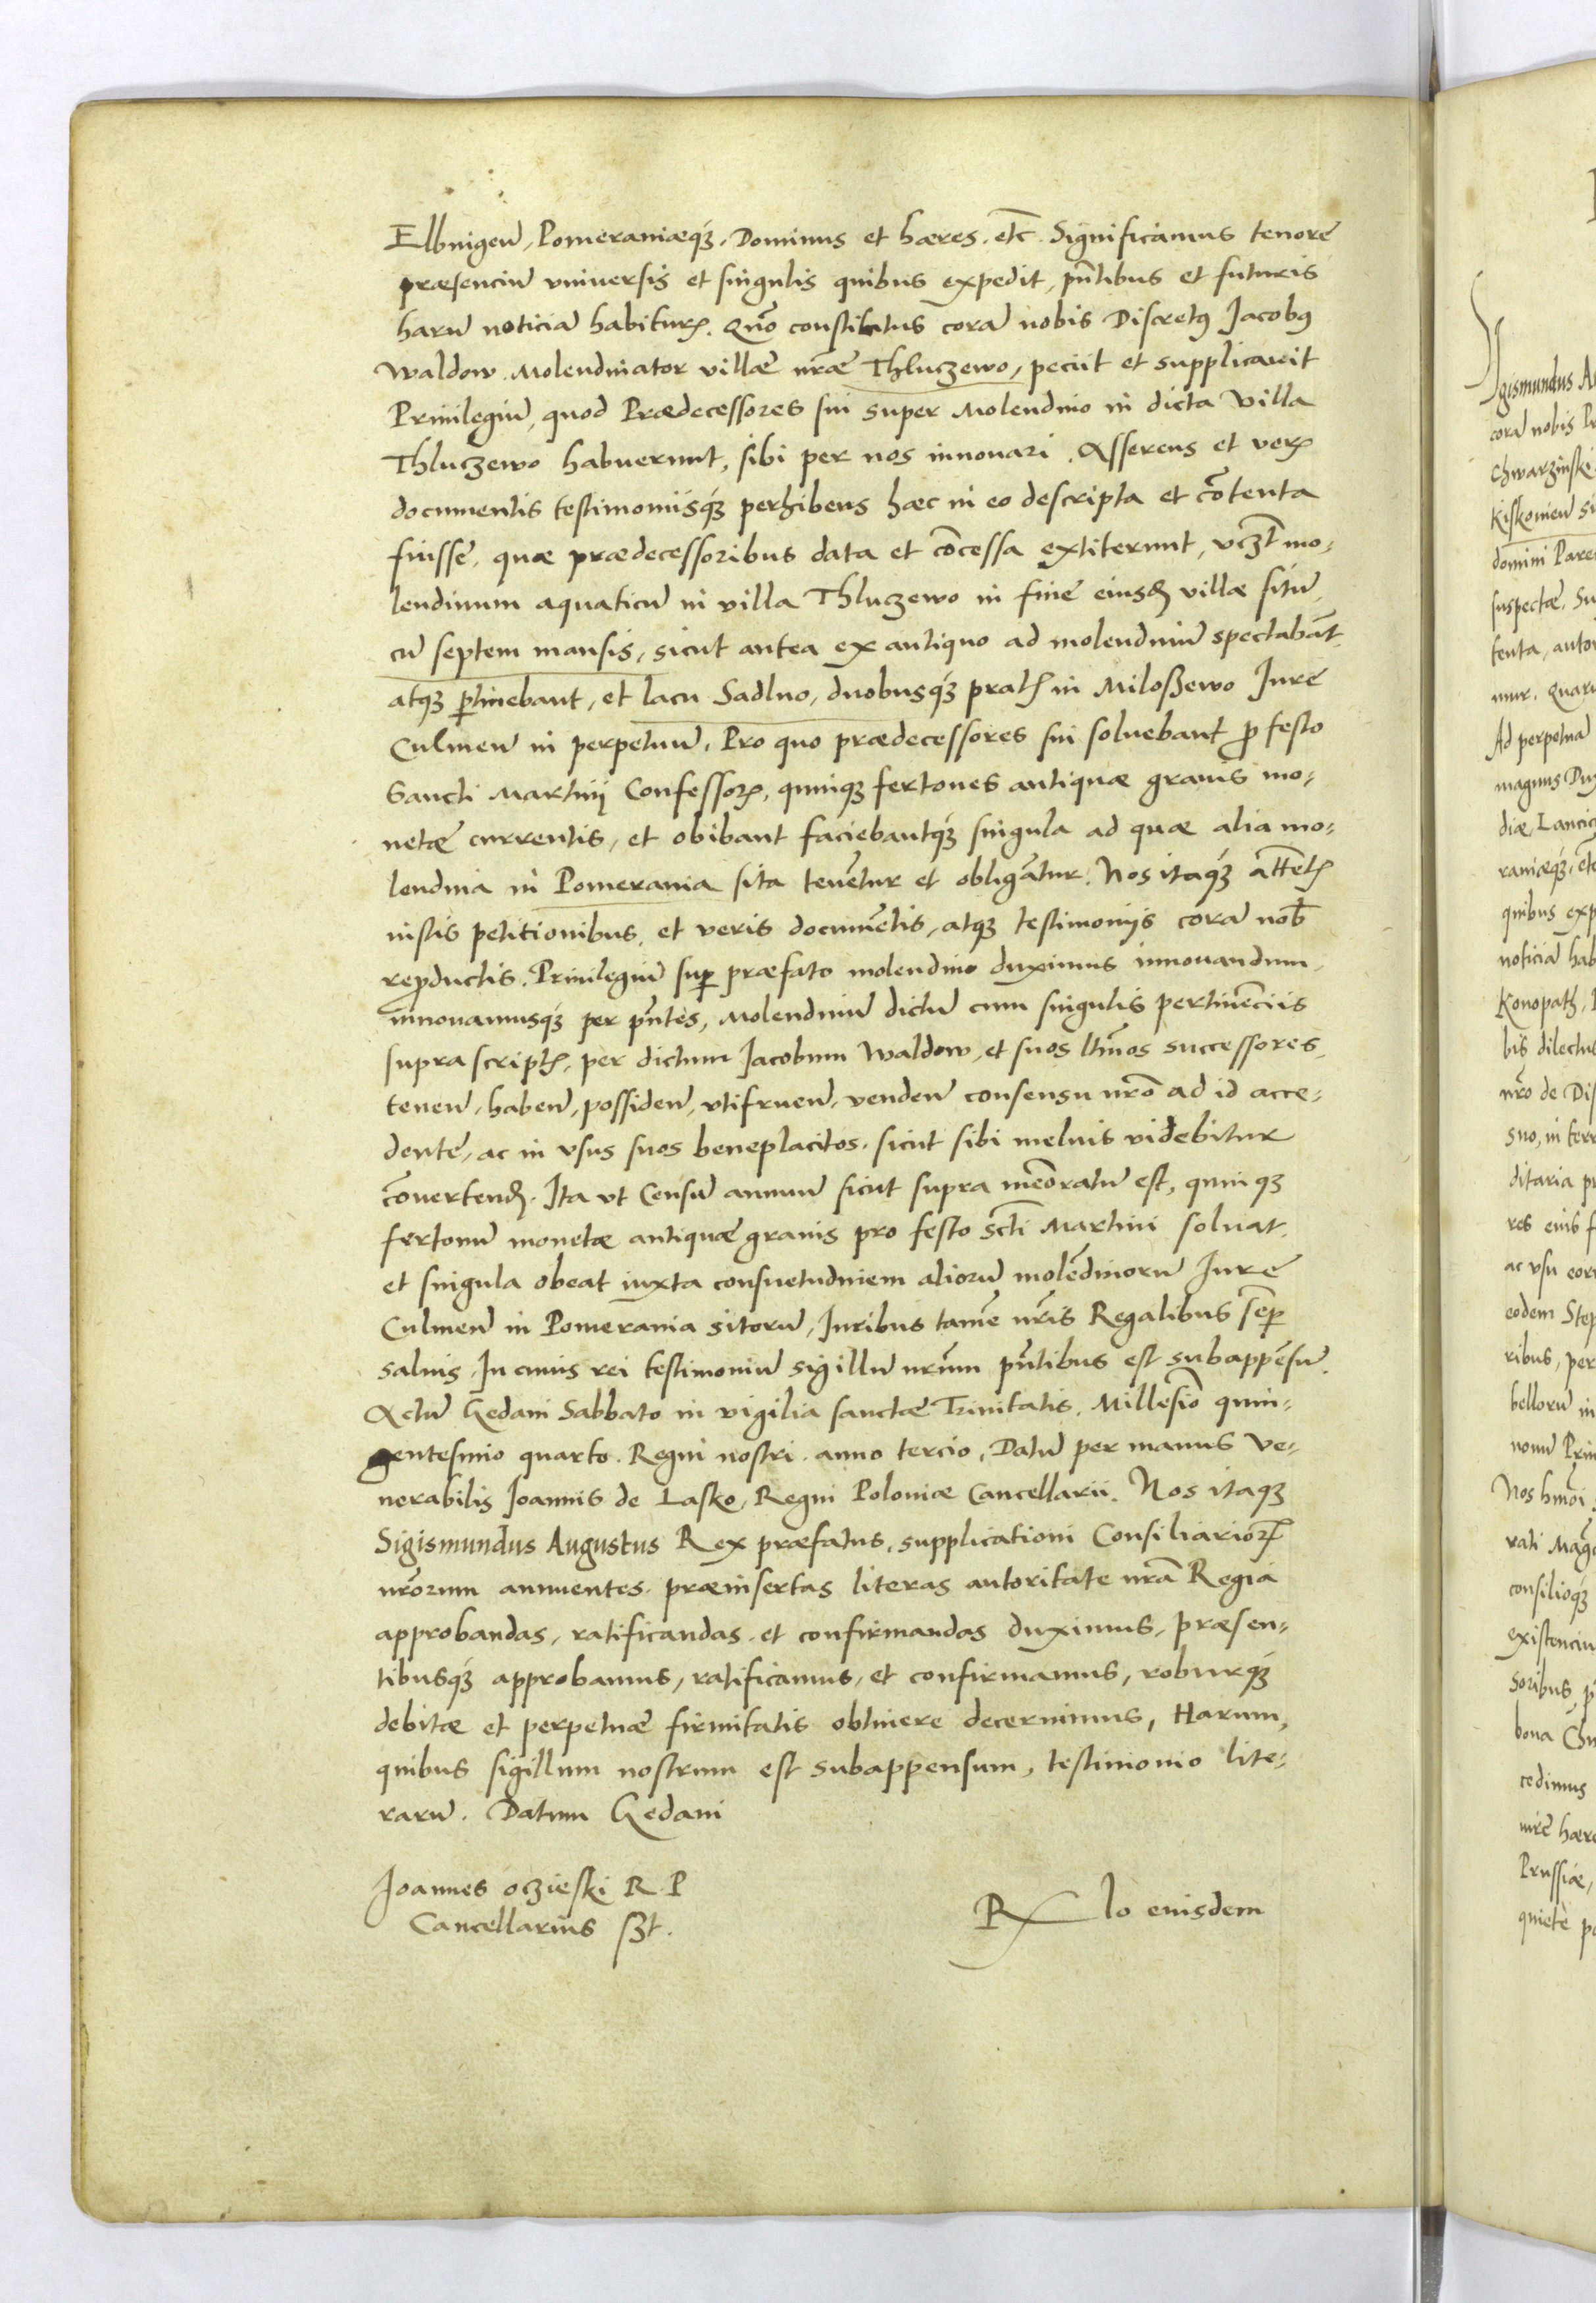 Elbingeñ, Pomeraniæq́ꝫ, Dominus et hæres. etc̃. Significamus tenorẽ
præsenciũ vniuersis et singulis quibus expedit, pñtibus et futuris
harũ noticiã habiturꝭ. Quõ constitutus corã nobis Discretꝯ Jacobꝯ
Waldow. Molendinator villæ nr̃æ Thluczewo, peciit et supplicauit
Priuilegiũ, quod Prædecessores sui super Molendino in dicta Villa
Thluczewo habuerunt, sibi per nos innouari. Asserens et verꝭ
documentis testimoniisq́ꝫ perhibens hæc in eo descripta et cõtenta
fuisse. quæ prædecessoribus data et cõcessa extiterunt, vczt̃ mo-
lendinum aquaticũ in villa Thluczewo in fine eiusđ villæ sitũ,
cũ septem mansis, sicut antea ex antiquo ad molendinũ spectabãt
atqꝫ ꝑtinebant, et lacu Sadlno, duobusq́ꝫ pratꝭ in Miloßewo Jure
Culmeñ in perpetuũ. Pro quo prædecessores sui soluebant ꝓ festo
Sancti Martinij Confessorꝭ, quinqꝫ fertones antiquæ grauis mo-
netæ currentis, et obibant faciebantq́ꝫ singula ad quæ alia mo-
lendina in Pomerania sita tenẽtur et obligãtur. Nos itaq́ꝫ attẽtꝭ
iustis petitionibus, et veris documẽtis, atqꝫ testimonijs corã nob̃
reꝓductis. Priuilegiũ suꝑ præfato molendino duximus innouandum,
innouamusq́ꝫ per pñtes, Molendinũ dictũ cum singulis pertinẽciis
supra scriptꝭ, per dictum Jacobum Waldow, et suos ltĩmos successores,
teneñ, habeñ, possideñ, vtifrueñ, vendeñ consensu nr̃o ad id acce-
dente, ac in vsus suos beneplacitos, sicut sibi melius videbitur
cõuertenđ. Ita vt Censũ annuũ sicut supra mẽoratũ est, quinqꝫ
fertonũ monetæ antiquæ grauis pro festo scti Martini soluat,
et singula obeat iuxta consuetudinem aliorũ molẽdinorũ Jure
Culmeñ in Pomerania sitorũ, Juribus tamẽ nr̃is Regalibus sẽꝑ
saluis. In cuius rei testimoniũ sigillũ nr̃um pñtibus est subappẽsũ.
Actũ Gedani Sabbato in vigilia sanctæ Trinitatis. Millesĩo quin-
gentesimo quarto. Regni nostri anno tercio, Datũ per manus Ve-
nerabilis Joannis de Lasko, Regni Poloniæ Cancellarii. Nos itaqꝫ
Sigismundus Augustus Rex præfatus, supplicationi Consiliariorꝝ
nr̃orum annuentes. præinsertas literas autoritate nr̃a Regia
approbandas, ratificandas, et confirmandas duximus, præsen-
tibusq́ꝫ approbamus, ratificamus, et confirmamus, roburq́ꝫ
debitæ et perpetuæ firmitatis obtinere decernimus, Harum,
quibus sigillum nostrum est subappensum, testimonio lite-
rarũ. Datum Gedani
Joannes oczieski R. P
Cancellarius sszt.
Rx lo eiusdem
Sigismundus
corã nobis
Chwarzinski
Kiskoweñ
domini
suspectæ.
tenta,
mur.
Ad perpetuã
magnus Dux
diæ, Lancic
raniæq́ꝫ, etc
quibus exp
noticiã hab
Konopatꝭ,
bis dilectus
nr̃o de Dis
suo, in terr
ditaria
res eius
ac vsu eor
eodem Step
ribus, per
bellorũ in
nouũ Prin
Nos hmõi
rati Mag
consilioq́ꝫ
existenciũ
soribus,
bona
cedimus
iure hære
Prussiæ,
quietè